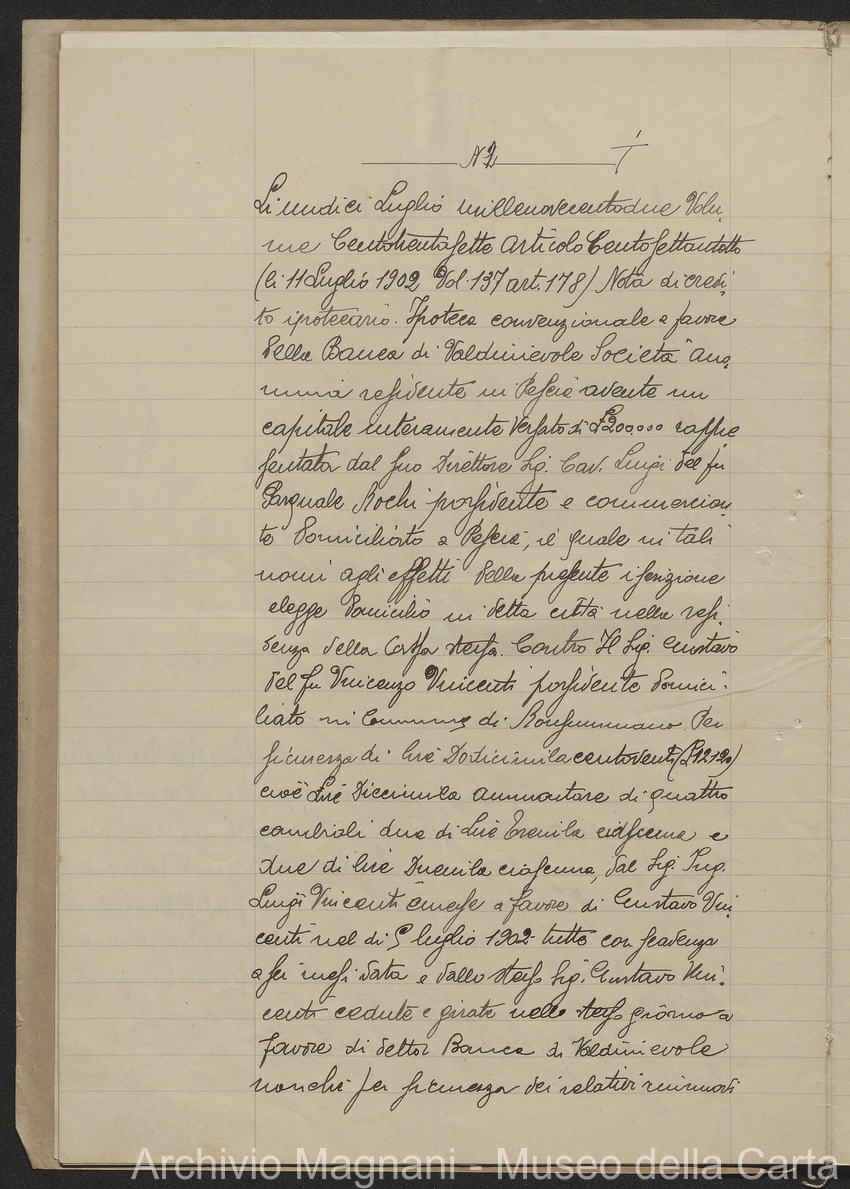 N 2
Li undici Luglio millenovecentodue Volu,
me Centotrentasette articolo Centosettantotto
(li 11 Luglio 1902 Vol. 137 art. 178) Nota di credi,
to ipotecario. Ipoteca convenzionale a favore
della Banca di Valdinievole Società Ano,
nima residente in Pescia avente un
capitale interamente versato di £200000 rappre,
sentata dal suo Direttore Sig. Cav. Luigi del fu
Pasquale Rochi possidente e commercian,
te domiciliato a Pescia, il quale in tali
nomi agli effetti della presente iscrizione
elegge domicilio in detta città nella resi,
denza della Cassa stessa. Contro Il Sig. Gustavo
del fu Vincenzo Vincenti possidente domici,
liato in Comune di Monsummano. Per
sicurezza di lire Dodicimilacentoventi (£12120)
cioè Lire Diecimila ammontare di quattro
cambiali due di Lire Tremila ciascuna e
due di lire Duemila ciascuna, dal Sig. Ing.
Luigi Vincenti emesse a favore di Gustavo Vin,
centi nel dì 5 luglio 1902 tutte con scadenza
a sei mesi data e dallo stesso Sig. Gustavo Vin,
centi cedute e girate nello stesso giorno a
favore di detta Banca di Valdinievole
nonché per sicurezza dei relativi rinnovi
Archivio Magnani - Museo della Carta